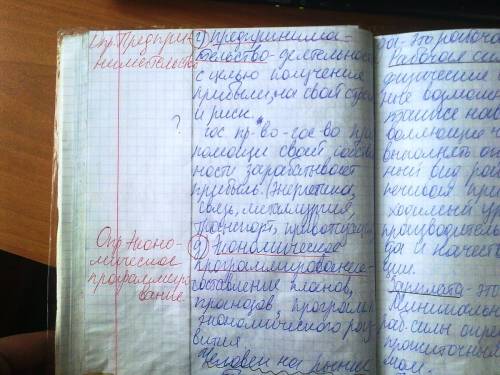 Опр. Предпри-
нимательства
?
Опр. Эконо-
мическое
программиро-
вание.
предпринима-
тельство - деятельность
с целью получения
прибыли, на свой страх
и риск.
Гос. пр-во - гос-во при
помощи своей собствен
ности зарабатывает
прибыль. (Энергетика,
связь, металлургия,
транспорт,
экономическое
программирование -
составление планов,
прогнозов, программ
экономического раз
вития.
Человек на рынке
это рабоча
Рабочая си
физические
возможн
выполнять оп
ный вид раб
производитель
и качест
ции.
Зарплата - это
Минимально
раб. силы опре
прожиточны
мом.